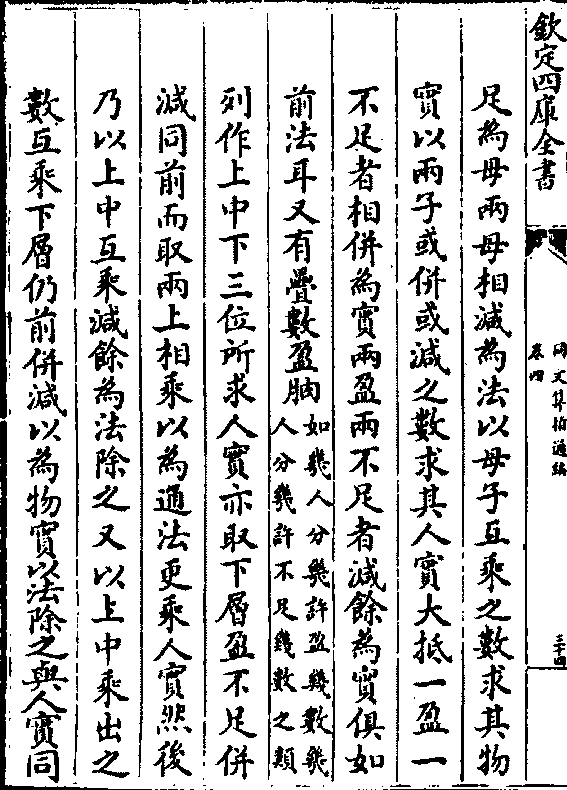 欽定四庫全書
同文算指通編
卷四
三十四
足為母兩母相減為法以母子互乘之數求其物
實以兩子或併或減之數求其人實大抵一盈一
不足者相併為實兩盈兩不足者減餘為實俱如
前法耳又有疊數盈朒如幾人分幾許盈幾數幾
人分幾許不足幾數之類
列作上中下三位所求人實亦取下層盈不足併
減同前而取兩上相乘以為通法更乘人實然後
乃以上中互乘減餘為法除之又以上中乘出之
數互乘下層仍前併減以為物實以法除之與人實同